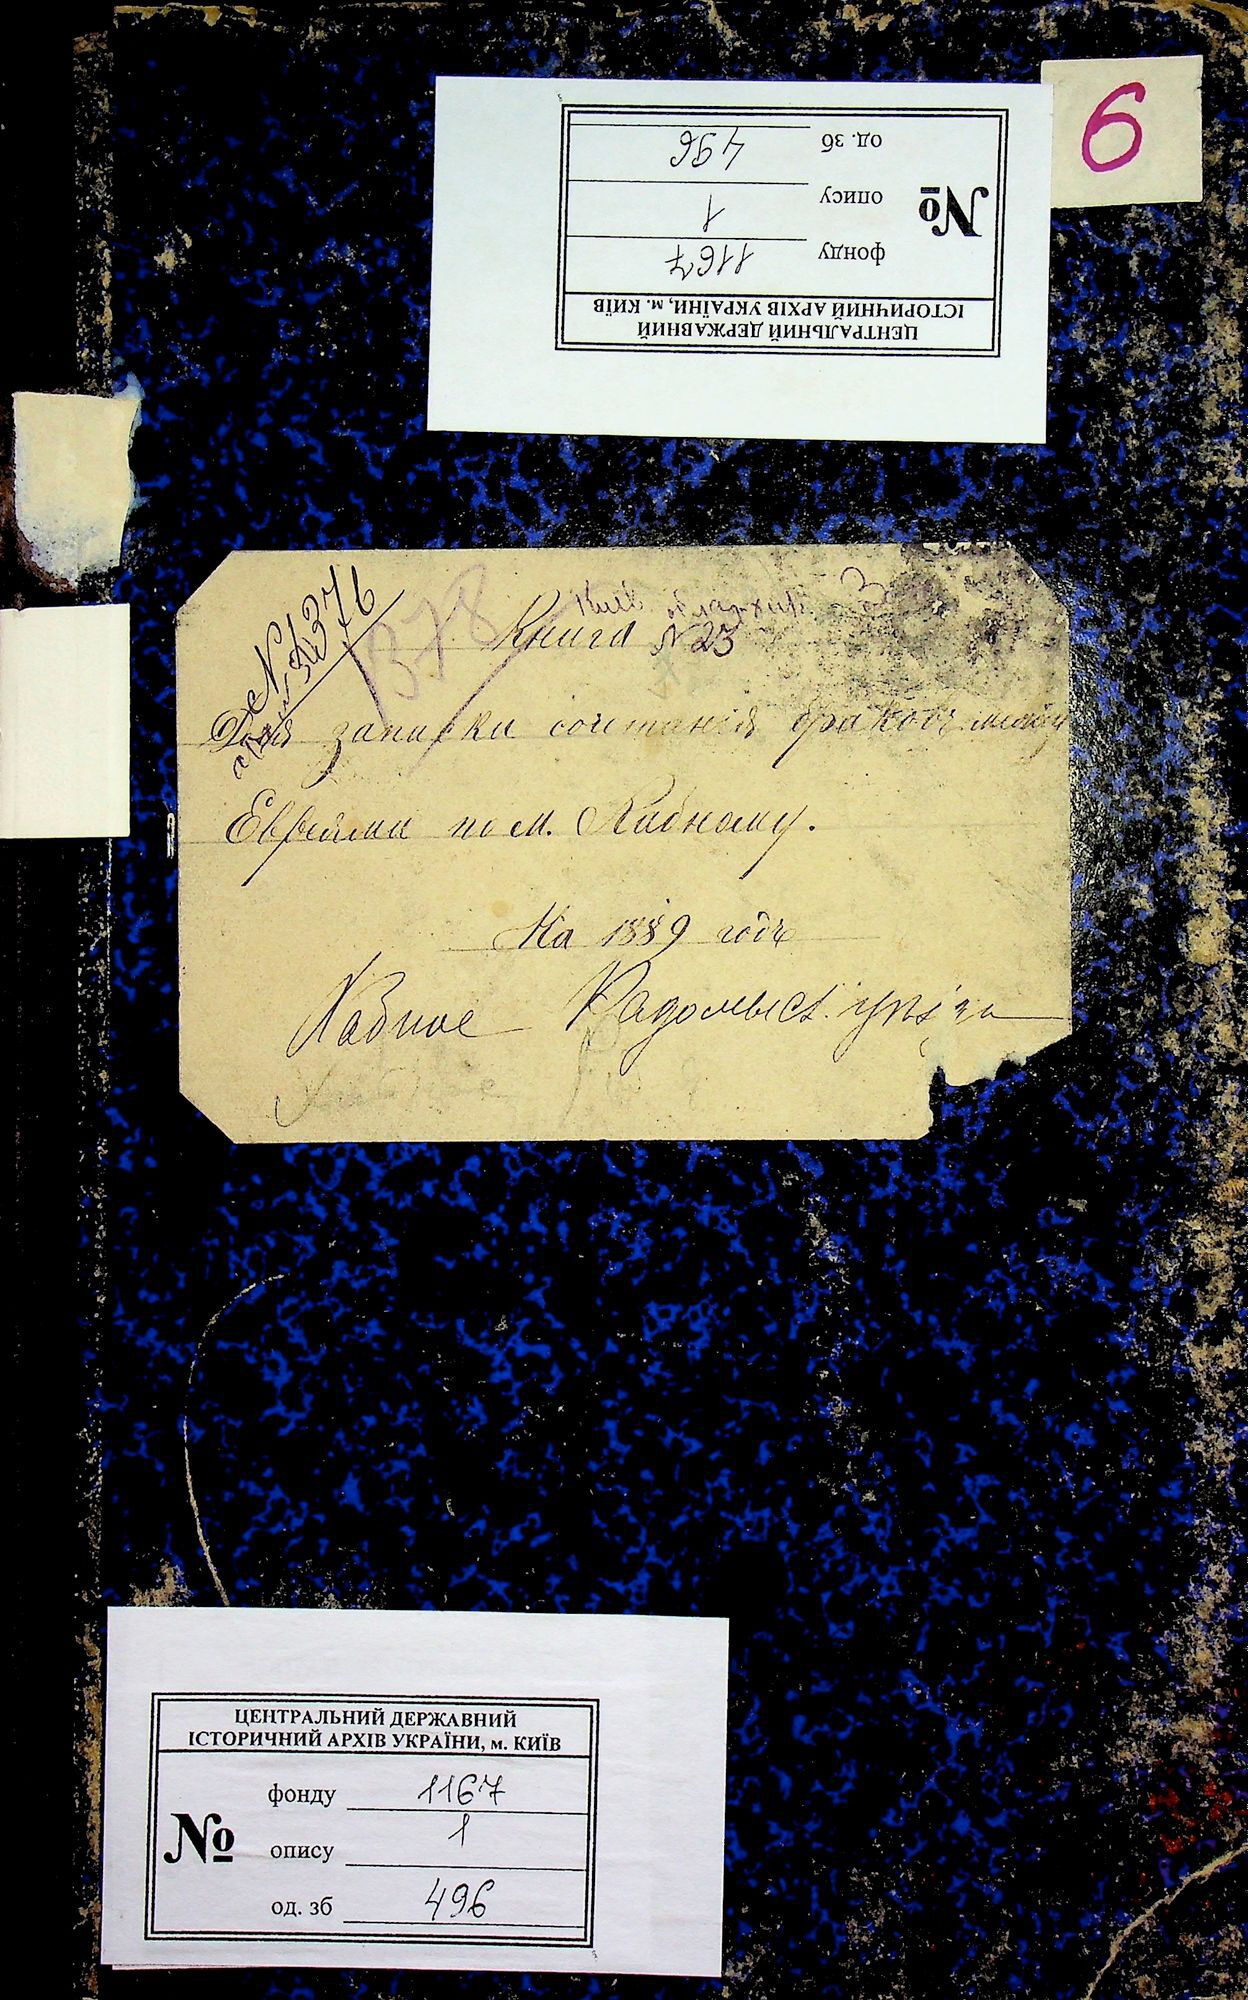 6
ЦЕНТРАЛЬНИЙ ДЕРЖАВНИЙ
ІСТОРИЧНИЙ АРХІВ УКРАЇНИ, м. КИЇВ
фонду 1167
№ опису 1
од. зб 496
В78
Книга №23
Для записки сочетанія браковъ между
Евреями по м. Хабному.
На 1889 годъ
Хабное Радомысл. уѣзда
ЦЕНТРАЛЬНИЙ ДЕРЖАВНИЙ
ІСТОРИЧНИЙ АРХІВ УКРАЇНИ, м. КИЇВ
фонду 1167
№ опису 1
од. зб 496